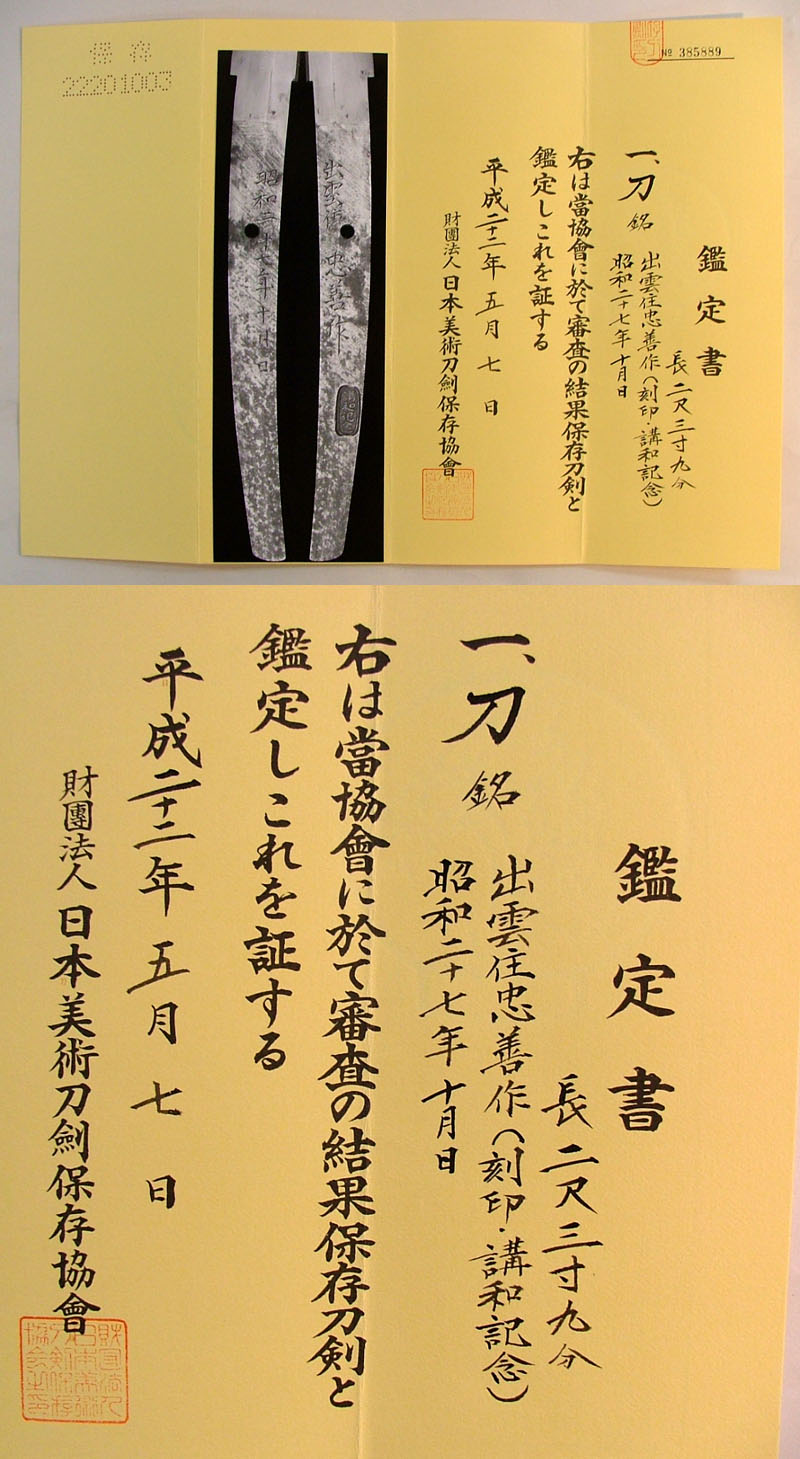 保存
22201003
昭和二十七年十月日
出雲住忠善作
№ 385889
鑑定書
長二尺三寸九分
一、刀 銘 出雲住忠善作(刻印・講和記念)
昭和二十七年十月日
右は當協會に於て審査の結果保存刀剣と
鑑定しこれを証する
平成二十二年五月七日
財團法人日本美術刀劍保存協會
鑑定書
長二尺三寸九分
一、刀 銘 出雲住忠善作(刻印・講和記念)
昭和二十七年十月日
右は當協會に於て審査の結果保存刀剣と
鑑定しこれを証する
平成二十二年五月七日
財團法人日本美術刀劍保存協會